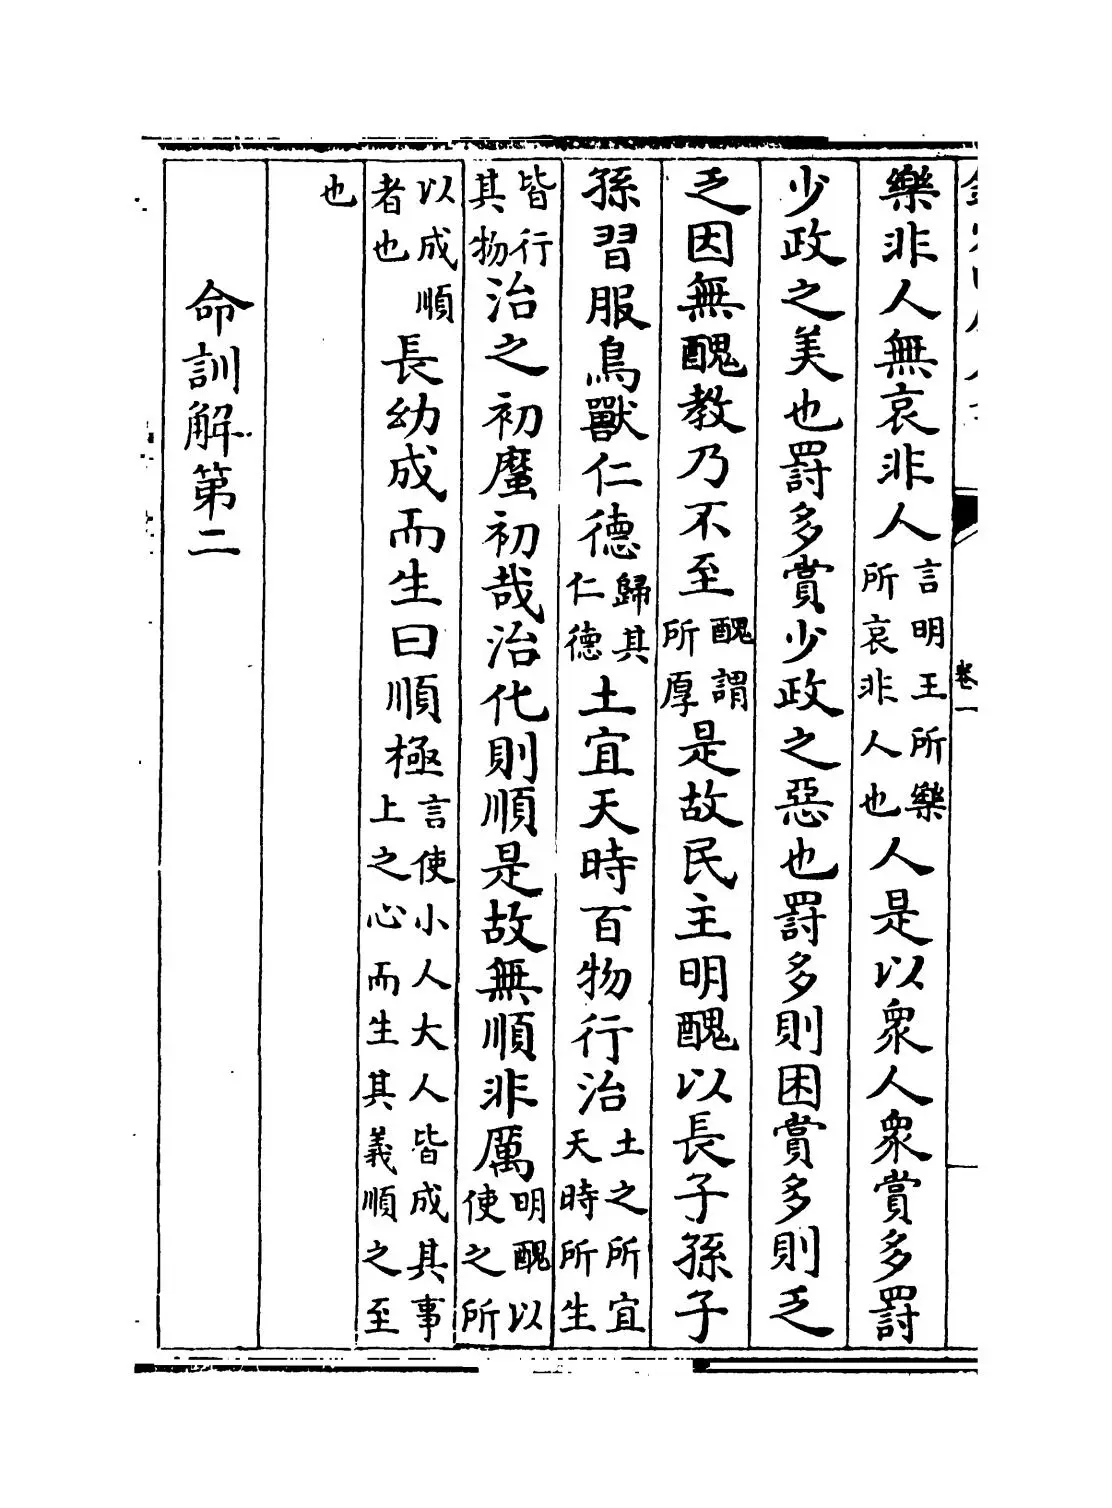 樂非人無哀非人言明王所樂所哀非人也人是以衆人衆賞多罰
少政之美也罰多賞少政之惡也罰多則困賞多則乏
乏因無醜教乃不至醜謂所厚是故民主明醜以長子孫子
孫習服鳥獸仁德歸其仁德土宜天時百物行治土之所宜天時所生
皆行其物治之初厘初哉治化則順是故無順非厲明醜以使之所
以成順者也長幼成而生曰順極言使小人大人皆成其事上之心而生其義順之至
也
命訓解第二
卷一